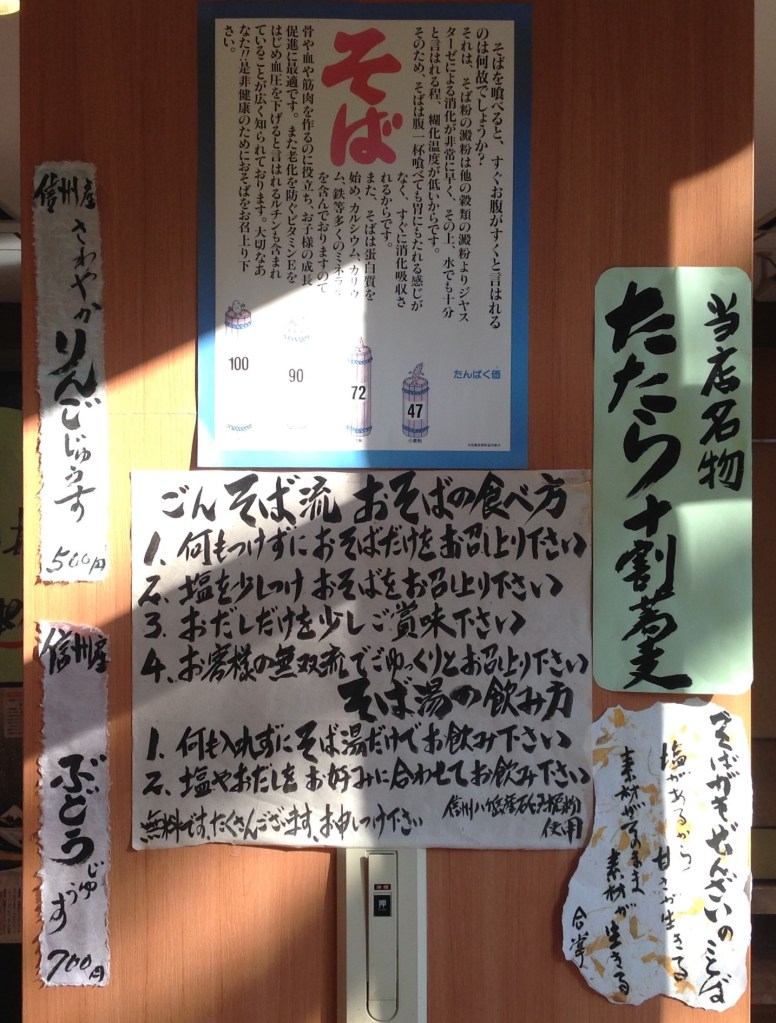 そば
そばを喰べると、すぐお腹がすくと言はれる
のは何故でしょうか?
それは、そば粉の澱粉は他の穀類の澱粉よりジヤス
ターゼによる消化が非常に早く、その上、水でも十分
と言はれる程、糊化温度が低いからです。
そのため、そばは腹一杯喰べても胃にもたれる感じが
なく、すぐに消化吸収さ
れるからです。
また、そばは蛋白質を
始め、カルシウム、カリウ
ム、鉄等多くのミネラル
を含んでおりますので
骨や血や筋肉を作るのに役立ち、お子様の成長
促進に最適です。また老化を防ぐビタミンEを
はじめ血圧を下げると言はれるルチンも含まれ
ていることが広く知られております。大切なあ
なた!!是非健康のためにおそばをお召上り下
さい。
たんぱく価
100
90
72
47
信州産
さわやか
りんごじゅうす
500円
信州産
ぶどう
じゅうす
700円
当店名物
たたら十割蕎麦
ごんそば流 おそばの食べ方
1、何もつけずにおそばだけをお召し上り下さい
2、塩を少しつけおそばをお召し上り下さい
3、おだしだけを少しご賞味下さい
4、お客様の無双流でごゆっくりとお召し上り下さい
そば湯の飲み方
1、何も入れずにそば湯だけでお飲み下さい
2、塩やおだしをお好みに合わせてお飲み下さい
無料です、たくさんございます、お申しつけ下さい
使用
そばがきぜんざいのことば
塩があるから
甘さが生きる
素材がそのまま
素材が生きる
合掌
押